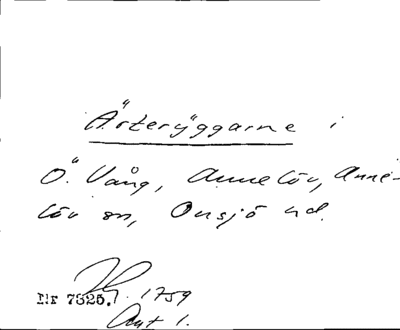 Ärteryggarne i
Ö. Vång, Annelöv, Anne-
löv sn, Onsjö hd.
Nr 7325. 1759
Akt 1.